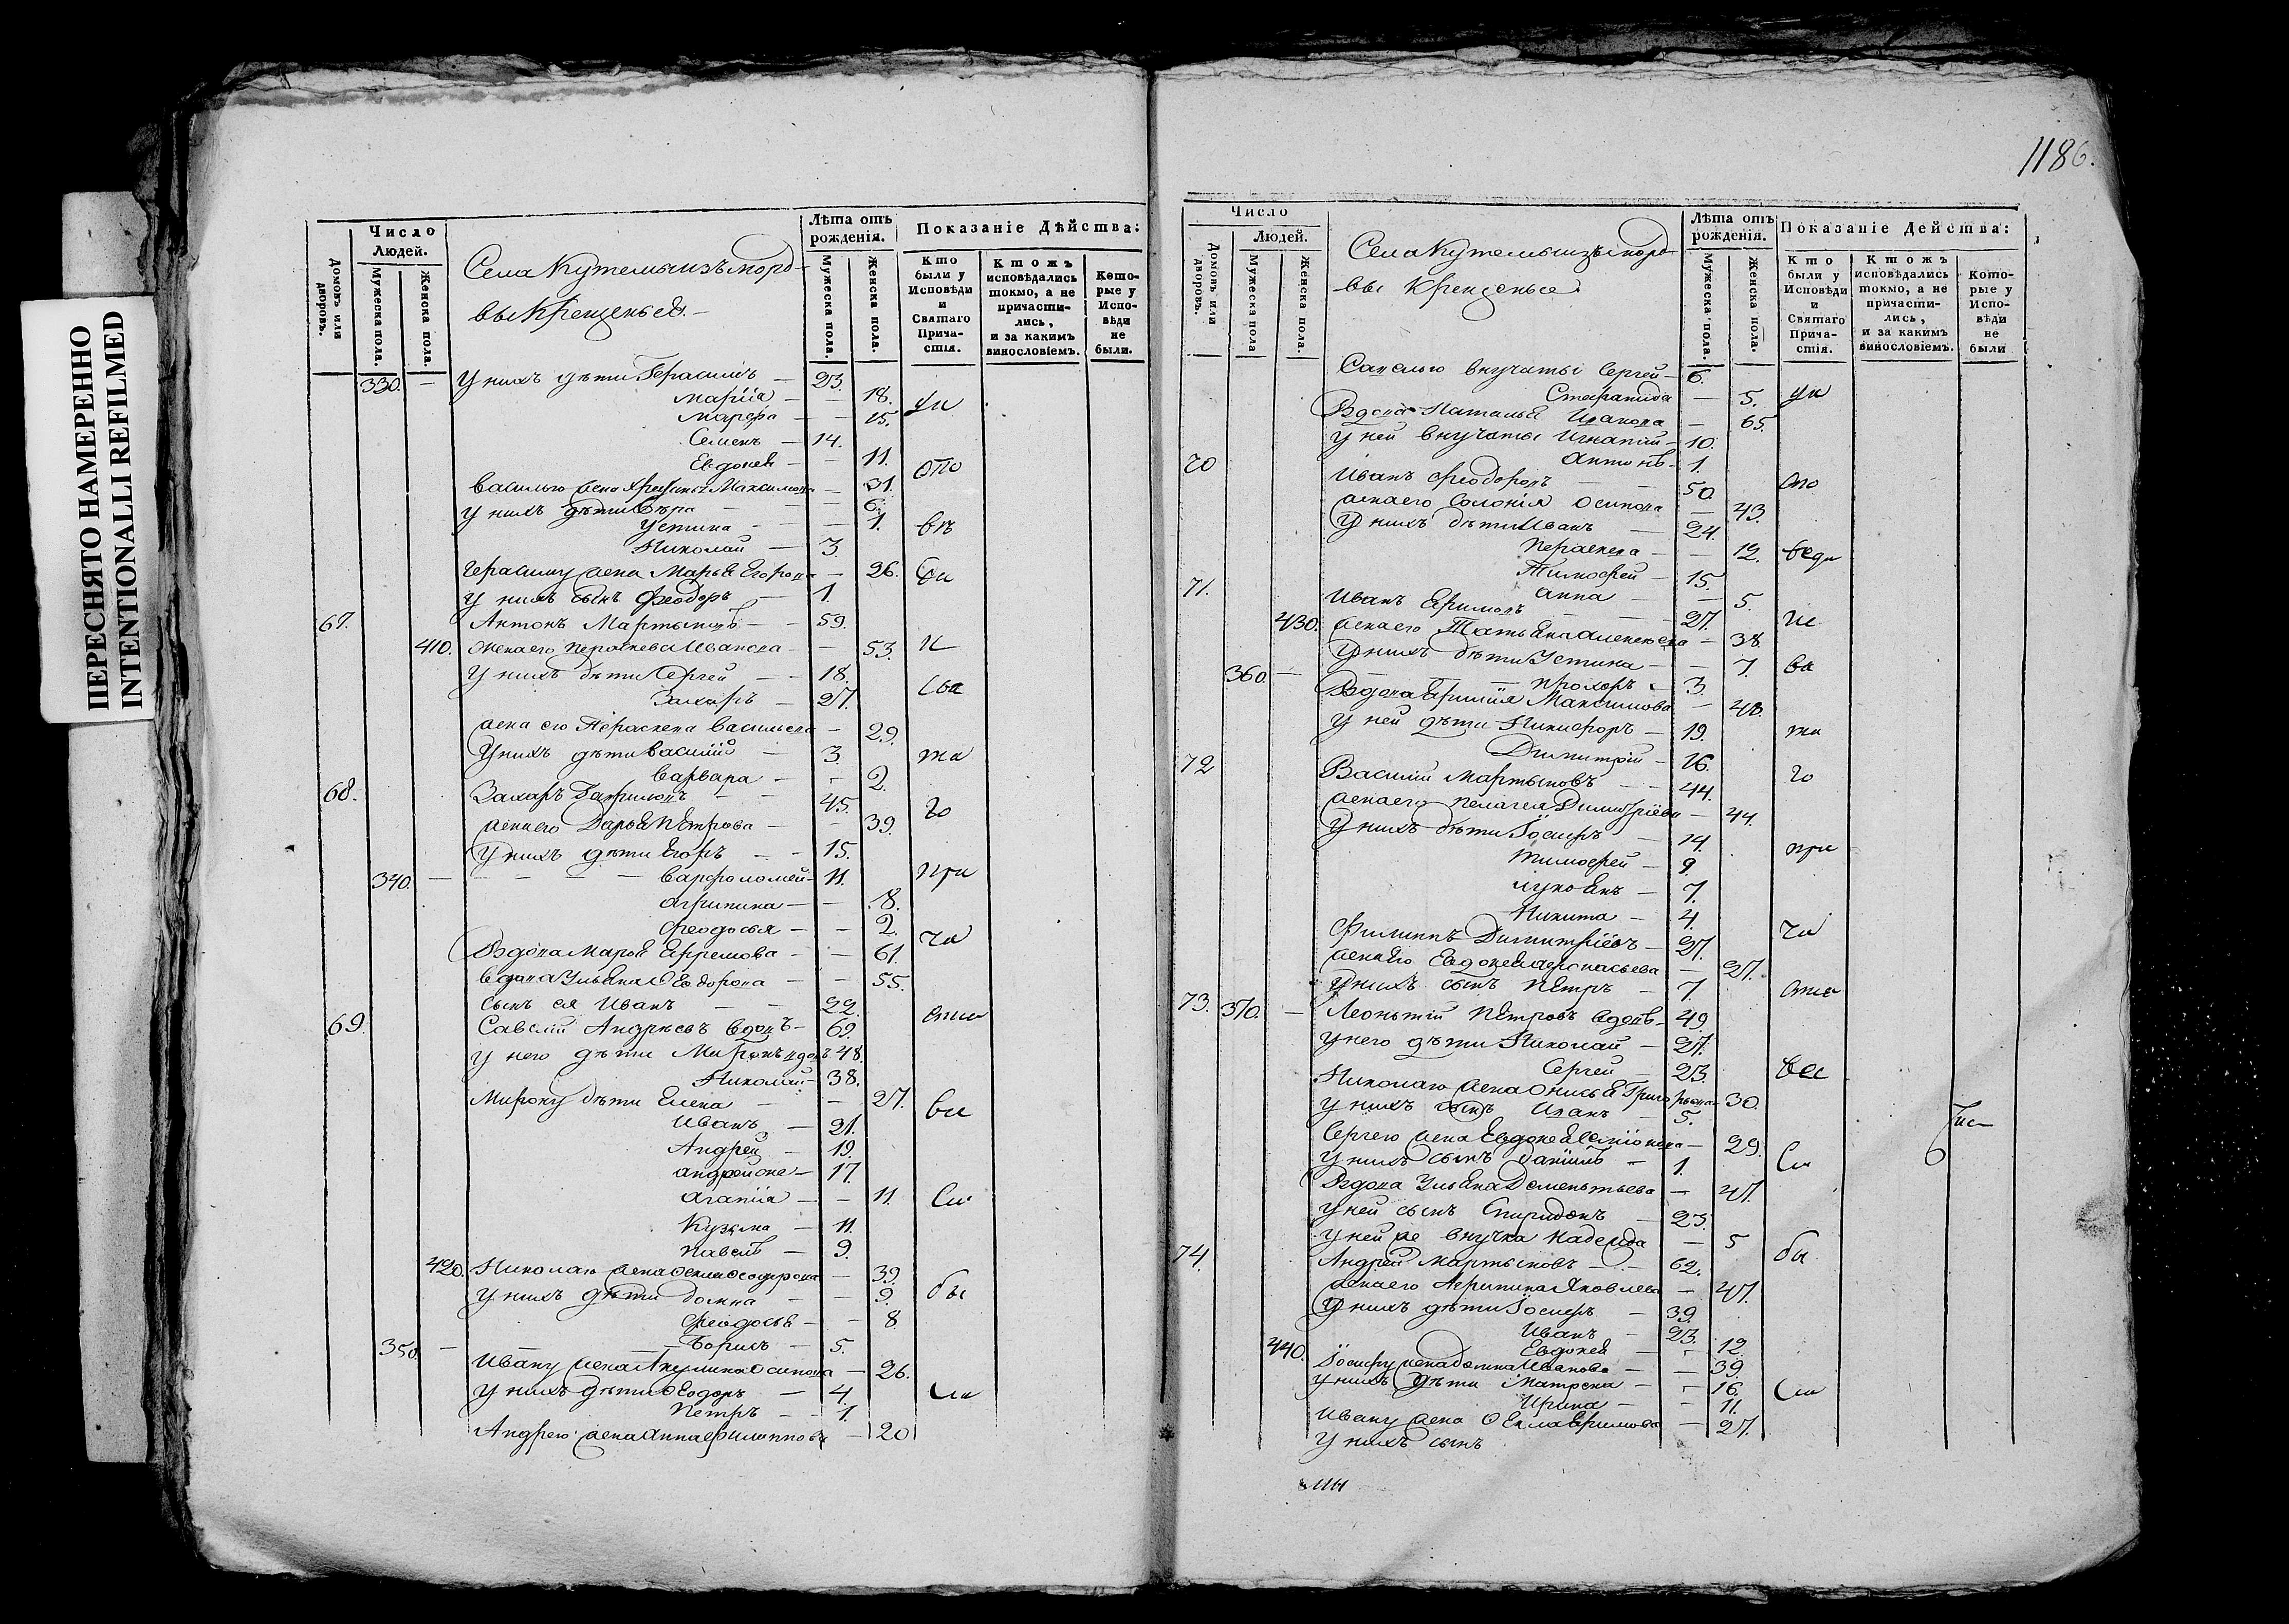 ПЕРЕСНЯТО НАМЕРЕННО
INTENTIONALLI REFILMED
Домовъ или дворовъ.
Число Людей.
Мужеска пола.
Женска пола.
Села
вы Крещеные
Лѣта отъ рожденія.
Мужеска пола.
Женска пола.
Показаніе Дѣйства:
Кто были у Исповѣди и Святаго Прича-стія.
Ктожъ исповѣдались токмо, а не причасти-лись, и за какимъ винословіемъ.
Кото-рые у Испо-вѣди не были.
330. — У нихъ дѣти Герасимъ — 23.
Маріïа — — 18.
Марфа — — 15.
Семенъ — 14.
Евдокея — 11.
Василью жена Максимова — 31.
У нихъ дѣти Вѣра — — 6.
Устина — — 1.
Николай — 3.
Герасиму жена Марья Егорова — 26.
У нихъ сынъ Феодоръ — 1
67. Антонъ Мартыновъ — 59.
410. жена его Парасκева Иванова — — 53.
У нихъ дѣти Сергей — — 18.
Захаръ — 27.
жена его Параскева Васильева — 29.
У нихъ дѣти Василій — 3.
Варвара — — 2.
68. Захаръ Гавриловъ — — 45.
жена его Дарья Петрова — — 39.
У нихъ дѣти Егоръ — — 15.
340. — — — — — Варфоломей — 11.
Агрипина — — 8.
Феодосья — — 2.
Вдова Марья Ефремова — — 61.
Вдова Ульяна Ѳеодорова — — 55.
Сынъ ея Иванъ — — 22.
69. Савелій Андреевъ вдовъ — 69.
У него дѣти Миронъ вдовъ 48.
Николай — 38.
Мирону дѣти Елена — — 27.
Иванъ — 21.
Андрей — 19.
Андрей же — 17.
Агапïïа — — 11.
Кузьма — 11.
Павелъ — 9.
420. Николаю жена Ѳекла — 39.
У нихъ дѣти Домна — — 9.
Феодосья — — 8
350. — — — Борисъ — 5.
Ивану жена Акулина Осипова — 26.
У нихъ дѣти Ѳеодоръ — 4.
Петръ — — 1.
Андрею жена Анна Филиппова — 20
1186.
Домовъ или дворовъ.
Число Людей.
Мужеска пола
Женска пола.
Села
вы Крещеные
Лѣта отъ рожденія.
Мужеска пола.
Женска пола.
Показаніе Действа:
Кто были у Исповѣди и Святаго Прича-стія.
Ктожъ исповѣдались токмо, а не причасти-лись, и за какимъ винословіемъ.
Кото-рые у Испо-вѣди не были
Савелью внучаты Сергей — 6.
— 5.
Вдова Наталья Иванова — 65.
У ней внучаты Игнатій — 10.
Антонъ — 1.
70 Иванъ Феодоровъ — — 50.
жена его Соломïя Осипова — 43.
У нихъ дѣти Иванъ — 24.
Параскева — — 12.
Тимофей — 15.
Анна — — 5.
71. Иванъ Ефимовъ — — 27.
430. жена его Татьяна Алексеева — 38.
У нихъ дѣти Устина — — 7.
360. — — — Прохоръ — 3.
Вдова Ефимïя Максимова — 48.
У ней дѣти Никифоръ — 19.
Димитрій — 16.
72 Василій Мартыновъ — — 44.
жена его Пелагея Димитрïева — 44.
У нихъ дѣти Іосифъ — 14.
Тимофей — 9.
Лукоянъ — 7.
Никита — 4.
Филиппъ Димитрïевъ — 27.
жена его Евдокея Афонасьева — 27.
У нихъ сынъ Петръ — 7.
73. 370. — Леонътій Петровъ вдовъ — 49.
У него дѣти Николай — 27.
Сергей — 23.
Николаю жена Онисья Григорьева — 30.
У нихъ сынъ Иванъ — 5.
Сергею жена Евдокея — 29.
У нихъ сынъ Данïилъ — 1.
Вдова Ульяна Деменьтьева — 47.
У ней сынъ Спиридонъ — 23.
У ней же внучка Надежда — 5
74. Андрей Мартыновъ — — 62.
жена его Агрипина Яковлева — 47.
У нихъ дѣти Іосифъ — 39.
Иванъ — 23.
440. Евдокея — — 12.
Іосифу жена Домна Иванова — — 39.
У нихъ дѣти Матрена — — 16.
Ирина — — 11.
Ивану жена Ѳекла Ефимова — 27.
У нихъ сынъ